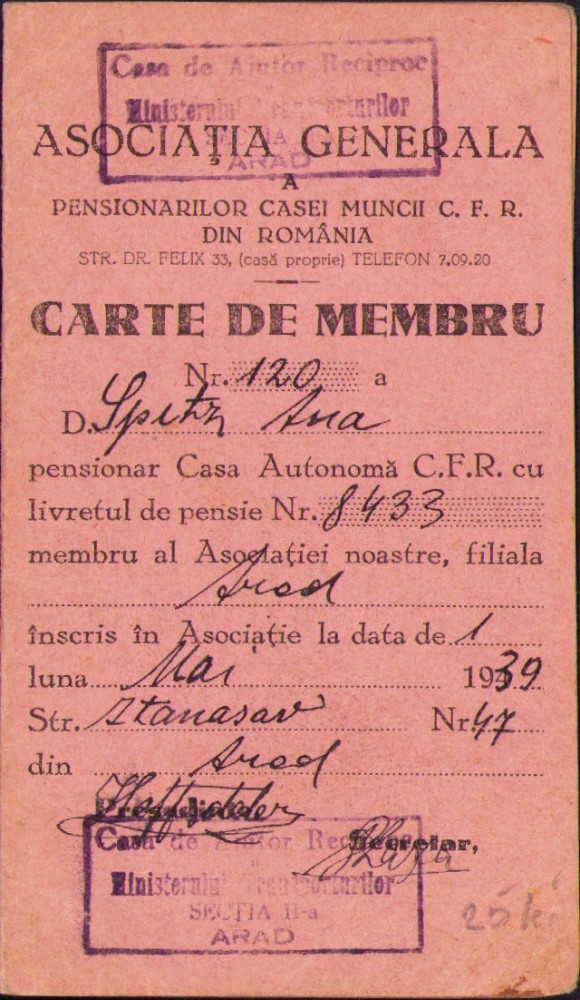 Casa de Ajutor Reciproc
Ministerului Transporturilor
SECȚIA
ARAD
ASOCIAȚIA GENERALA
A
PENSIONARILOR CASEI MUNCII C. F. R.
DIN ROMÂNIA
STR. DR. FELIX 33, (casă proprie) TELEFON 7.09.20
CARTE DE MEMBRU
Nr. 120 a
D. Spitz Ana
pensionar Casa Autonomă C.F.R. cu
livretul de pensie Nr. 8433
membru al Asociației noastre, filiala
Arad
înscris în Asociație la data de 1
luna Mai 1939
Str. Nr. 47
din Arad
Președinte,
Secretar,
Casa de Ajutor Reciproc
Ministerului Transporturilor
SECȚIA II-a
ARAD